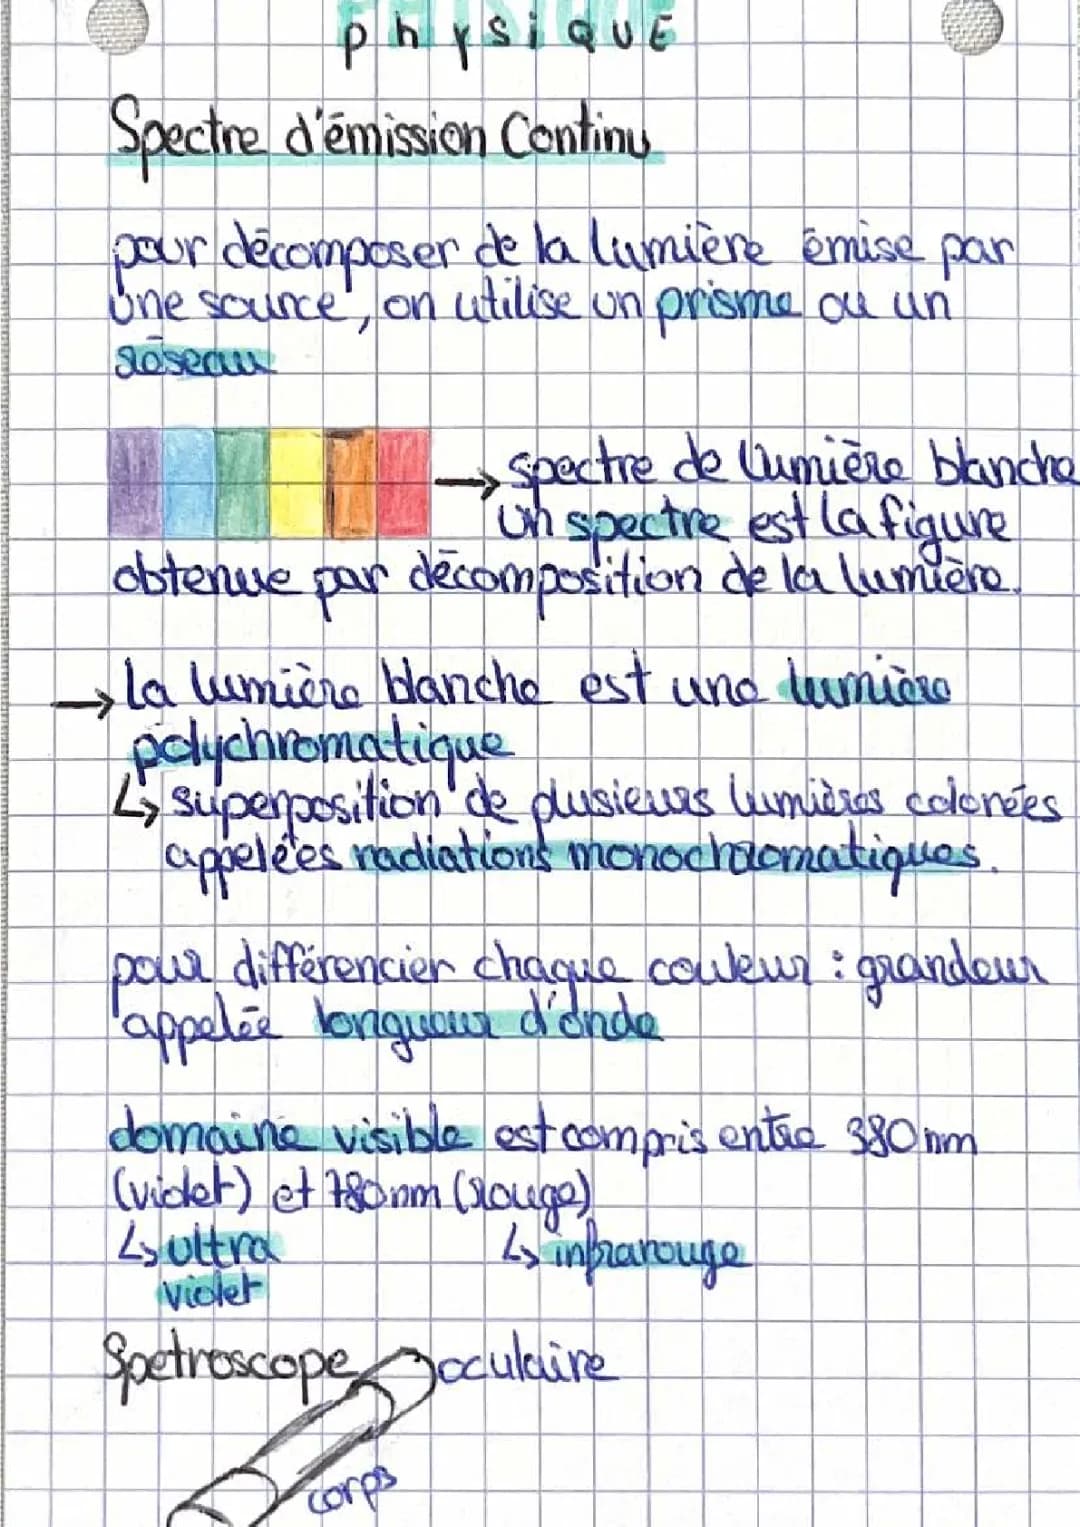 physIQUE
Spectre d'émission Continu
pour décomposer de la lumière émise par
une source, on utilise un prisme ou un
réseau
→ spectre de lumière blanche
un spectre est la figure
obtenue par décomposition de la lumière.
→ la lumière blanche est une lumière
polychromatique
↳ superposition de plusieurs lumières colorées
appelées radiations monochromatiques.
pour différencier chaque couleur : grandeur
appelée longueur d'onde
domaine visible est compris entre 380 nm
(violet) et 780 nm (rouge)
↳ ultra ↳ infrarouge
violet
Spetroscope oculaire
corps